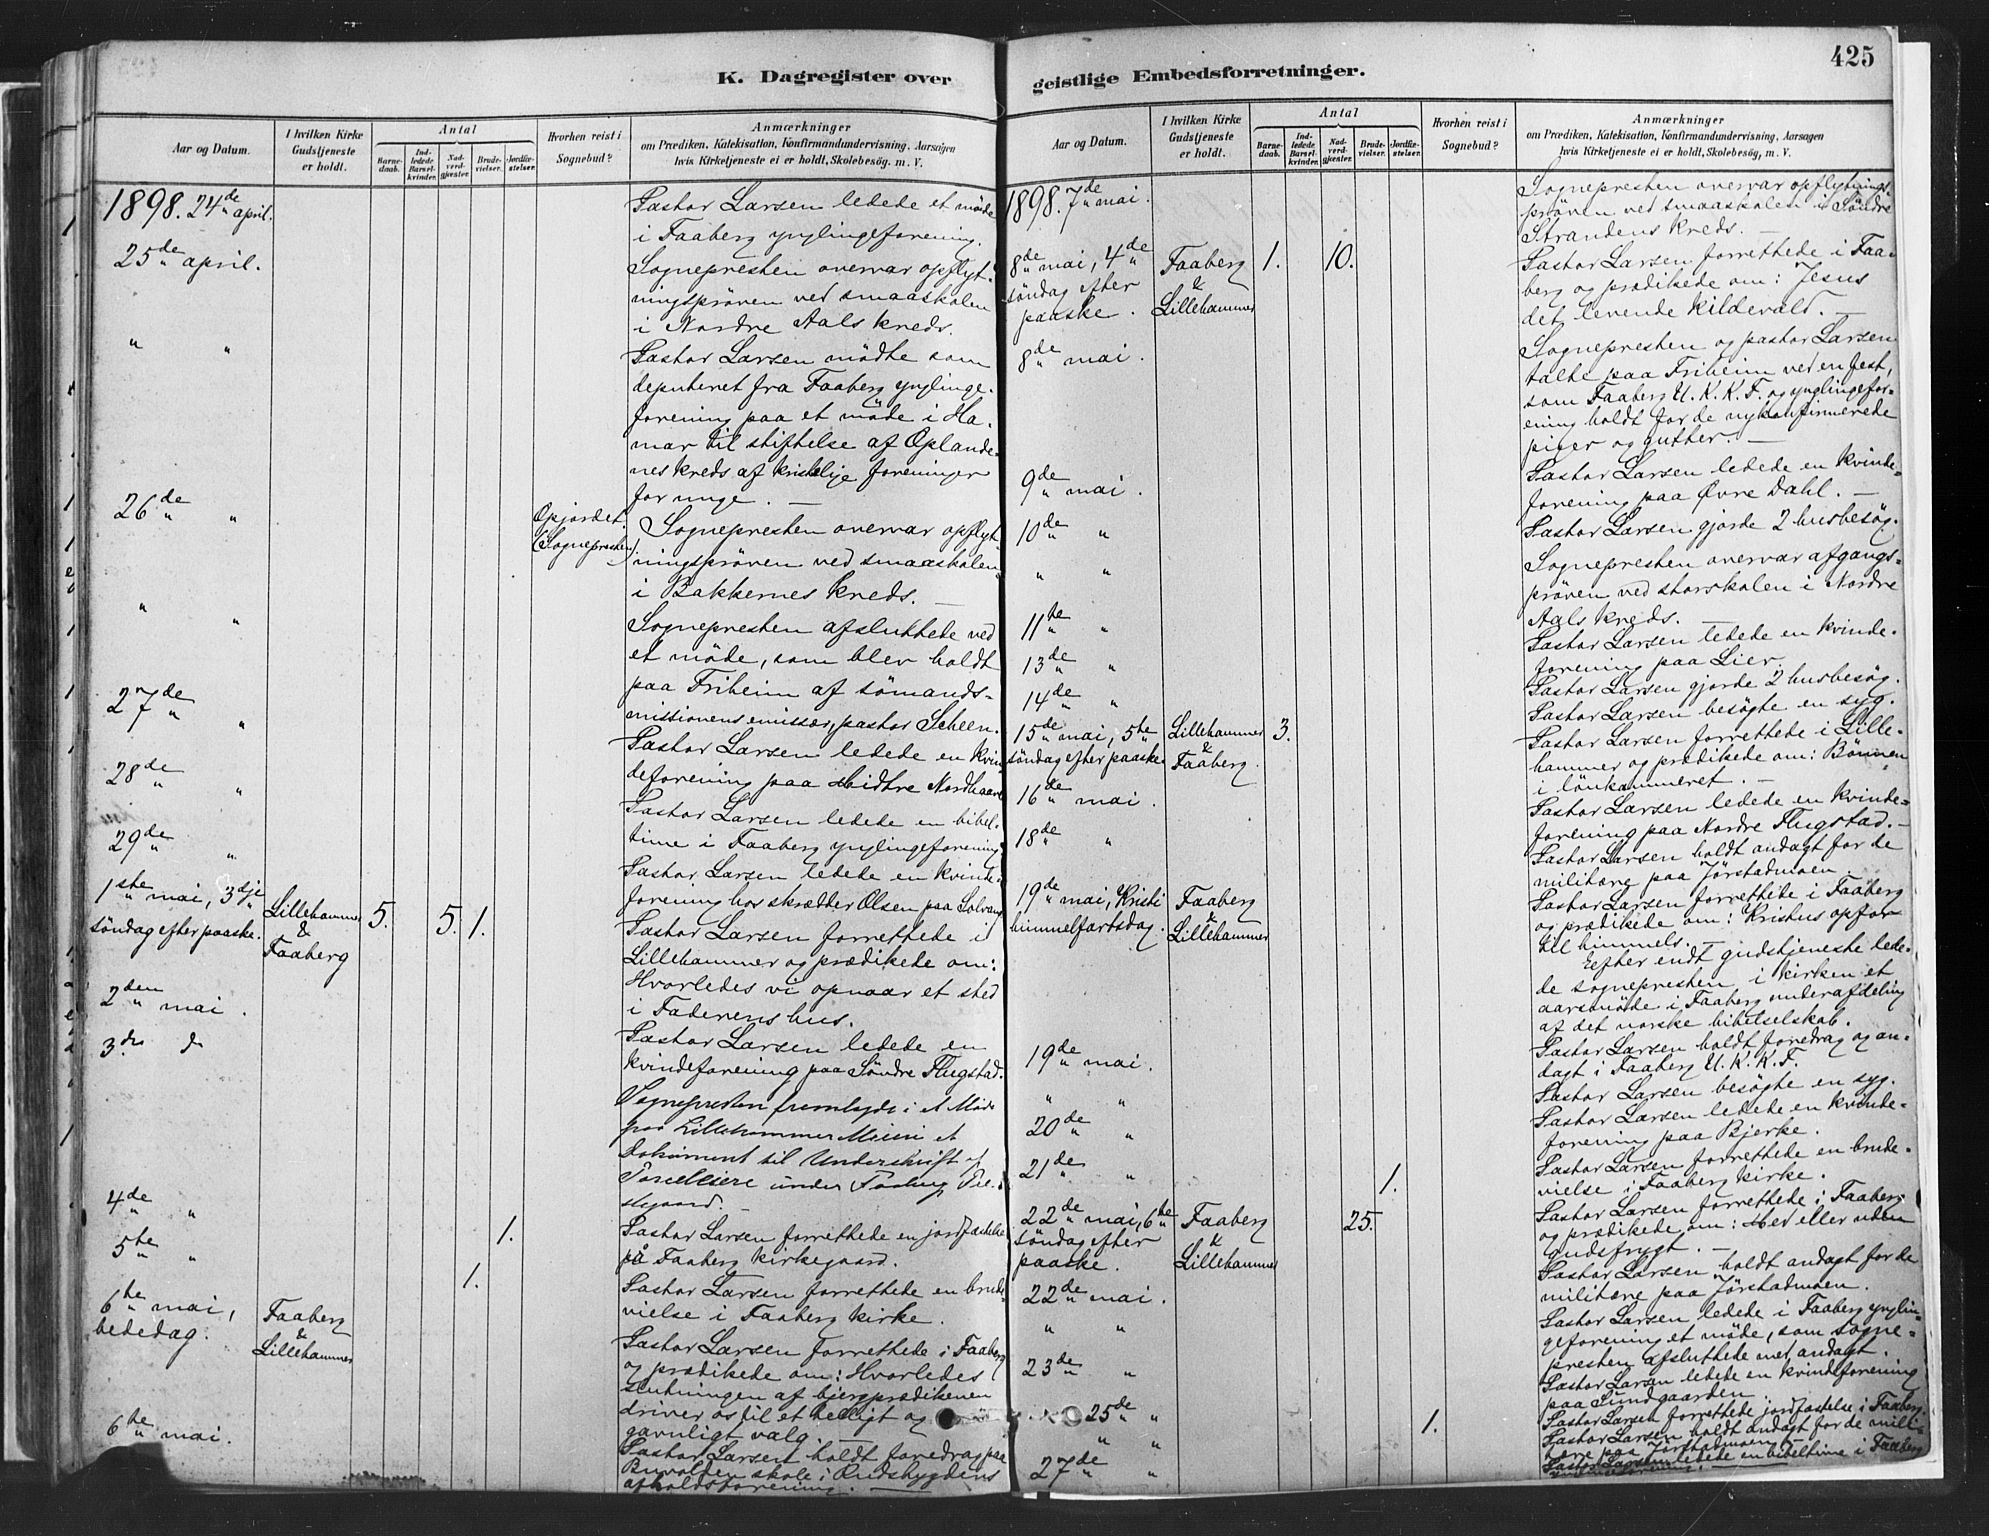 K. Dagregister over
Aar og Datum.
I hvilken Kirke Gudstjeneste er holdt.
Antal
Barne-daab.
Ind-ledede Barsel-kvinder.
Nad-verd-gjester.
Brude-vielser.
Jordfæ-stelser.
Hvorhen reist i Sognebud?
Anmærkninger
om Prædiken, Katekisation, Konfirmandundervisning, Aarsagen
hvis Kirketjeneste ei er holdt, Skolebesøg, m. V.
1898. 24de april.
Pastor Larsen ledede et møde
i Faaberg ynglingeforening.
25de april.
Sognepresten overvar opflyt-
ningsprøven ved smaaskolen
i Nordre Aals kreds.
" "
Pastor Larsen mødte som
deputeret fra Faaberg ynglinge-
forening paa et møde i Ha-
mar til stiftelse af Oplande-
nes kreds af kristelige foreninger
for unge. —
26de "
Opjordet.
(Sognepresten)
Sognepresten overvar opflyt-
ningsprøven ved smaaskolen
i Bakkernes kreds. —
" "
Sognepresten afsluttede ved
et møde, som blev holdt
paa Friheim af sømands-
missionens emissær, pastor Scheen.
27de "
Pastor Larsen ledede en kvin-
deforening paa Midtre Nordhaave
28de "
Pastor Larsen ledede en bibel-
time i Faaberg ynglingeforening
29de "
Pastor Larsen ledede en kvinde-
forening hos skrædder Olsen paa Solvang
1ste mai, 3dje
søndag efter paaske.
Lillehammer
&
Faaberg
5. 5. 1.
Pastor Larsen forrettede i
Lillehammer og prædikede om:
Hvorledes vi opnaar et sted
i Faderens hus.
2den mai.
Pastor Larsen ledede en
kvindeforening paa Søndre Flugstad.
3die do
Sognepresten fremlagde i et Møde
paa Lillehammer Meieri et
Dokument til Underskrift af
under Faaberg Præ-
stegaard. —
4de "
1.
Pastor Larsen forrettede en jordfæstelse
på Faaberg kirkegaard.
5te "
1.
Pastor Larsen forrettede en brude-
vielse i Faaberg kirke.
6te mai,
bededag.
Faaberg
&
Lillehammer
Pastor Larsen forrettede i Faaberg
og prædikede om: Hvorledes
slutningen af bjergprædikenen
driver os til et helligt og
gavnligt valg. —
6te mai.
Pastor Larsen holdt foredrag paa
skole i Rudsbygdens
afholdsforening. —
geistlige Embedsforretninger.
425
Aar og Datum.
I hvilken Kirke Gudstjeneste er holdt.
Antal
Barne-daab.
Ind-ledede Barsel-kvinder.
Nad-verd-gjester.
Brude-vielser.
Jordfæ-stelser.
Hvorhen reist i Sognebud?
Anmærkninger
om Prædiken, Katekisation, Konfirmandundervisning, Aarsagen
hvis Kirketjeneste ei er holdt, Skolebesøg, m. V.
1898. 7de mai.
Sognepresten overvar opflytnings-
prøven ved smaaskolen i Søndre
Strandens kreds. —
8de mai, 4de
søndag efter
paaske.
Faaberg
&
Lillehammer
1. 10.
Pastor Larsen forrettede i Faa-
berg og prædikede om: Jesus
det levende kildevæld. —
8de mai.
Sognepresten og pastor Larsen
talte paa Friheim ved en fest,
som Faaberg U. K. K. F. og ynglingefor-
ening holdt for de nykonfirmerede
piger og gutter. —
9de mai.
Pastor Larsen ledede en kvinde-
forening paa Øvre Dahl. —
10de "
Pastor Larsen gjorde 2 husbesøg.
" "
Sognepresten overvar afgangs-
prøven ved storskolen i Nordre
Aals kreds. —
11te "
Pastor Larsen ledede en kvinde-
forening paa Lier.
13de "
Pastor Larsen gjorde 2 husbesøg.
14de "
Pastor Larsen besøgte en syg.
15de mai, 5te
søndag efter paaske
Lillehammer
&
Faaberg.
3.
Pastor Larsen forrettede i Lille-
hammer og prædikede om: Bønnen
i lønkammeret. —
16de mai.
Pastor Larsen ledede en kvinde-
forening paa Nordre Flugstad. —
18de "
Pastor Larsen holdt andagt for de
militære paa Jørstadmoen
19de mai, Kristi
himmelfartsdag.
Faaberg
&
Lillehammer
Pastor Larsen forrettede i Faaberg
og prædikede om: Kristus opfor
til himmels.
Eefter endt gudstjeneste lede-
de sognepresten i kirken et
aarsmøde i Faaberg underafdeling
af det norske bibelselskab.
19de mai.
Pastor Larsen holdt foredrag og an-
dagt i Faaberg U. K. K. F.
" "
Pastor Larsen besøgte en syg.
20de "
Pastor Larsen ledede en kvinde-
forening paa Bjerke.
21de "
1.
Pastor Larsen forrettede en brude-
vielse i Faaberg kirke.
22de mai, 6te
søndag efter
paaske.
Faaberg
&
Lillehammer
25.
Pastor Larsen forrettede i Faaberg
og prædikede om: Med eller uden
gudsfrygt. —
22de mai.
Pastor Larsen holdt andagt for de
militære paa Jørstadmoen.
" "
Pastor Larsen ledede i Faaberg ynglin-
geforening et møde, som sogne-
presten afsluttede med andagt.
23de "
Pastor Larsen ledede en kvindeforening
paa Sundgaarden
25de "
1.
Pastor Larsen forrettede jordfæstelse i Faaberg.
" "
Pastor Larsen holdt andagt for de mili-
tære paa Jørstadmoen
27de "
Pastor Larsen ledede en bibeltime i Faaberg
ynglingeforening.